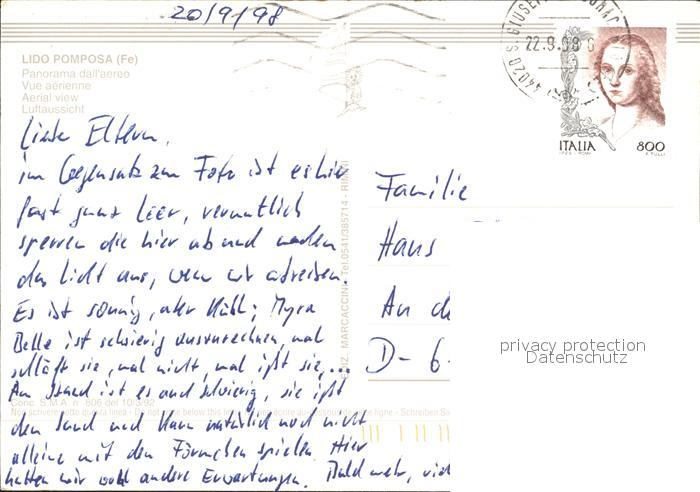 20/9/98
LIDO POMPOSA (Fe)
Panorama dall'aereo
Vue aérienne
Aerial view
Luftaussicht
22.9.98
44020 S. GIUSEPPE
ITALIA 800
Liebe Eltern,
im Gegensatz zum Foto ist es hier
fast ganz leer, vermutlich
sperren die hier ab und machen
das Licht aus, wenn wir abreisen.
Es ist sonnig, aber kühl; Myra
Belle ist schwierig auszurechnen, mal
schläft sie, mal nicht, mal ißt sie, ...
Am Strand ist es auch schwierig, sie ißt
den Sand und kann natürlich noch nicht
alleine mit den Förmchen spielen. Hier
hatten wir wohl andere Erwartungen. Bald mehr, viel
MARCACCINI - Tel. 0541/385714 - RIMINI
Conc. S.M.A. n. 806 del 10/3/92
Non scrivere sotto questa linea - Do not write below this line
Familie
Hans
An de
D- 6
privacy protection
Datenschutz